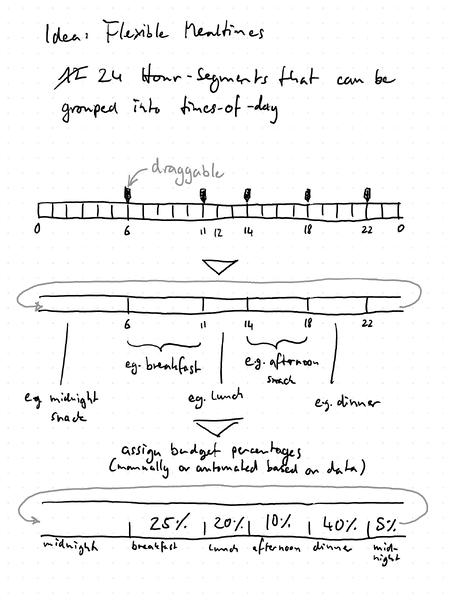 Idea: Flexible Mealtimes
24 Hour-Segments that can be
grouped into times-of-day
draggable
0 6 11 12 14 18 22 0
6 11 14 18 22
eg. breakfast
e.g. afternoon
snack
eg midnight
snack
eg. lunch
e.g. dinner
assign budget percentages
(manually or automated based on data)
25% 20% 10% 40% 5%
midnight breakfast lunch afternoon dinner mid-
night